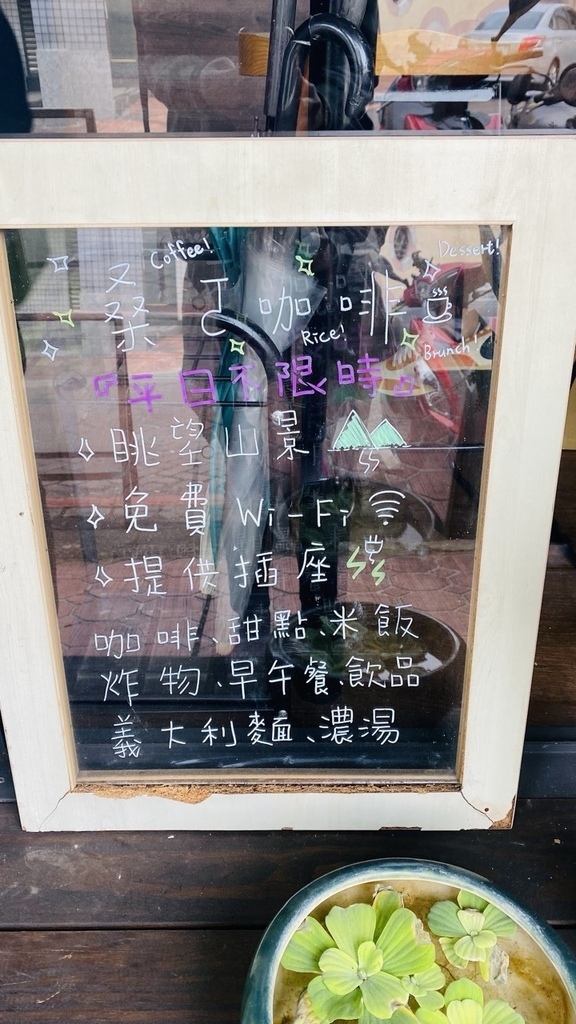 Coffee!
Dessert!
叒工咖啡
Rice!
Brunch!
平日不限時
眺望山景
免費 Wi-Fi
提供插座
咖啡、甜點、米飯
炸物、早午餐、飲品
義大利麵、濃湯